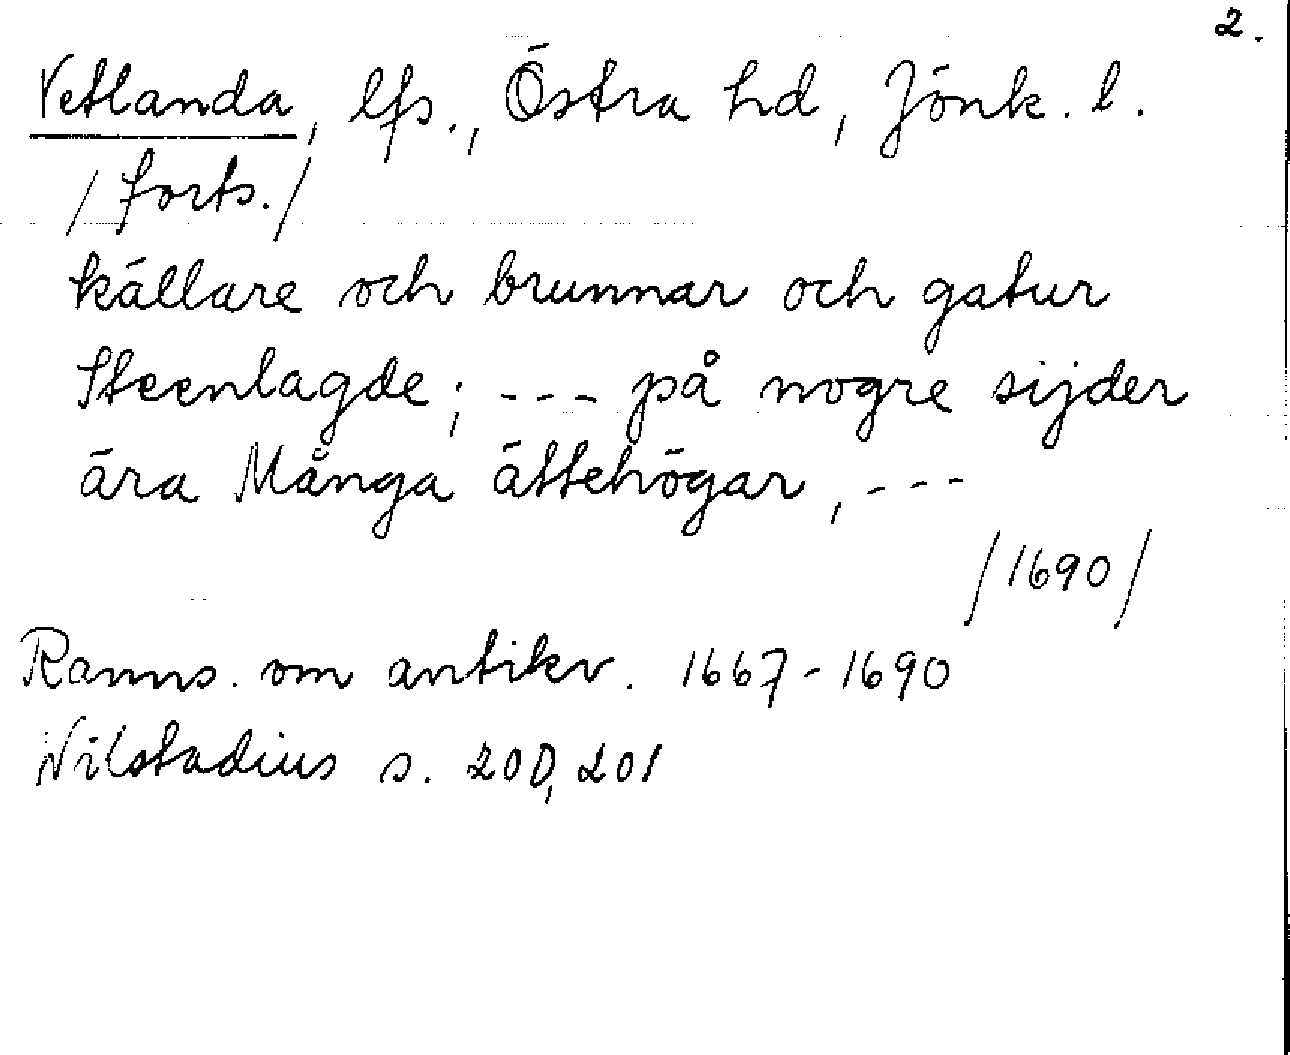 2.
Vetlanda, lfs., Östra hd, Jönk. l.
/forts./
källare och brunnar och gatur
Steenlagde; --- på nogre sijder
ära Många ättehögar, ---
/1690/
Ranns. om antikv. 1667-1690
Nilstadius s. 200, 201